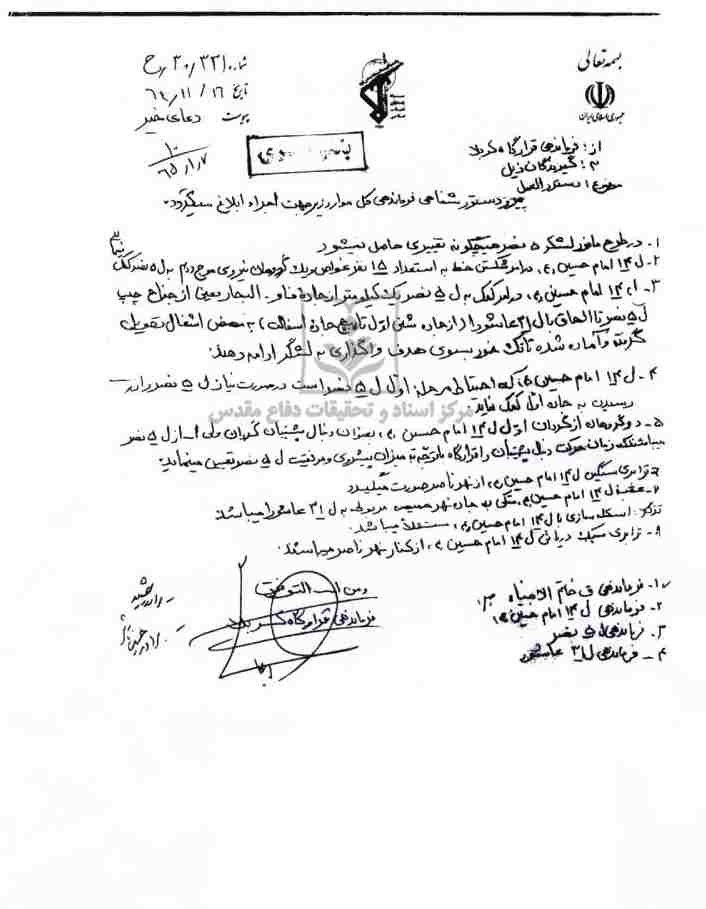 بسمه تعالی
جمهوری اسلامی ایران
شماره ۳۰/۳۳۱۰/ح
تاریخ ۶۴/۱۱/۱۶
پیوست دعای خیر
۱۰
۶۵/۱/۷
از: فرماندهی قرارگاه کربلا
به: گیرندگان ذیل
موضوع: دستورالعمل
دستور شفاهی فرماندهی کل موارد زیر جهت اجراء ابلاغ میگردد.
۱- در طرح مانور لشکر ۵ نصر هیچگونه تغییری حاصل نمیشود
۲- ل ۱۴ امام حسین (ع) در امر شکستن خط به استعداد ۱۵ نفر غواص و یک گروهان نیروی موج دوم به ل ۵ نصر کمک نماید
۳- ل ۱۴ امام حسین (ع) در امر کمک به ل ۵ نصر یک کیلومتر از جاده فاو - البحار یعنی از جناح چپ
ل ۵ نصر تا الحاق با ل ۳۱ عاشورا از جاده شنی اول تا
گرفته و آماده شده تا تک خود بسوی هدف واگذاری به لشگر ادامه دهند.
۴- ل ۱۴ امام حسین (ع) که احتیاط مرحله اول ل ۵ نصر است در صورت نیاز ل ۵ نصر را در
رسیدن به جاده اول کمک نماید
مرکز اسناد و تحقیقات دفاع مقدس
۵- دو گردهان از گردان اول ل ۱۴ امام حسین (ع) بعنوان دنبال پشتیبان گردان از ل ۵ نصر
میباشند که زمان حرکت دنبال پشتیبان را قرارگاه با توجه به میزان پیشروی و موفقیت ل ۵ نصر تعیین مینماید.
۶- ترابری سنگین ل ۱۴ امام حسین (ع) از نهر ناصر صورت میگیرد
۷- عقبه ل ۱۴ امام حسین (ع) متکی به جاده نهر مربوطه به ل ۳۱ عاشورا میباشد
تذکر: اسکله سازی با ل ۱۴ امام حسین (ع) مستقلا میباشد.
۸- ترابری سبک دریائی ل ۱۴ امام حسین (ع) از کنار نهر ناصر میباشد.
و من الله التوفیق
فرماندهی قرارگاه کربلا
۱- فرماندهی ق خاتم الانبیاء
۲- فرماندهی ل ۱۴ امام حسین (ع)
۳- فرماندهی ل ۵ نصر
۴- فرماندهی ل ۳۱ عاشورا
برادر رشید